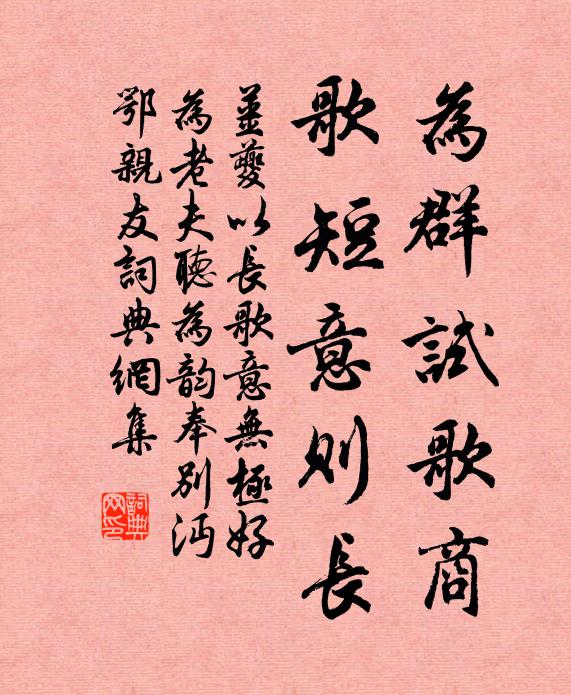 為群試歌商
歌短意則長
姜夔以長歌意無極好
為老夫聽為韵奉別沔
鄂親友詞典網集
詞典网印